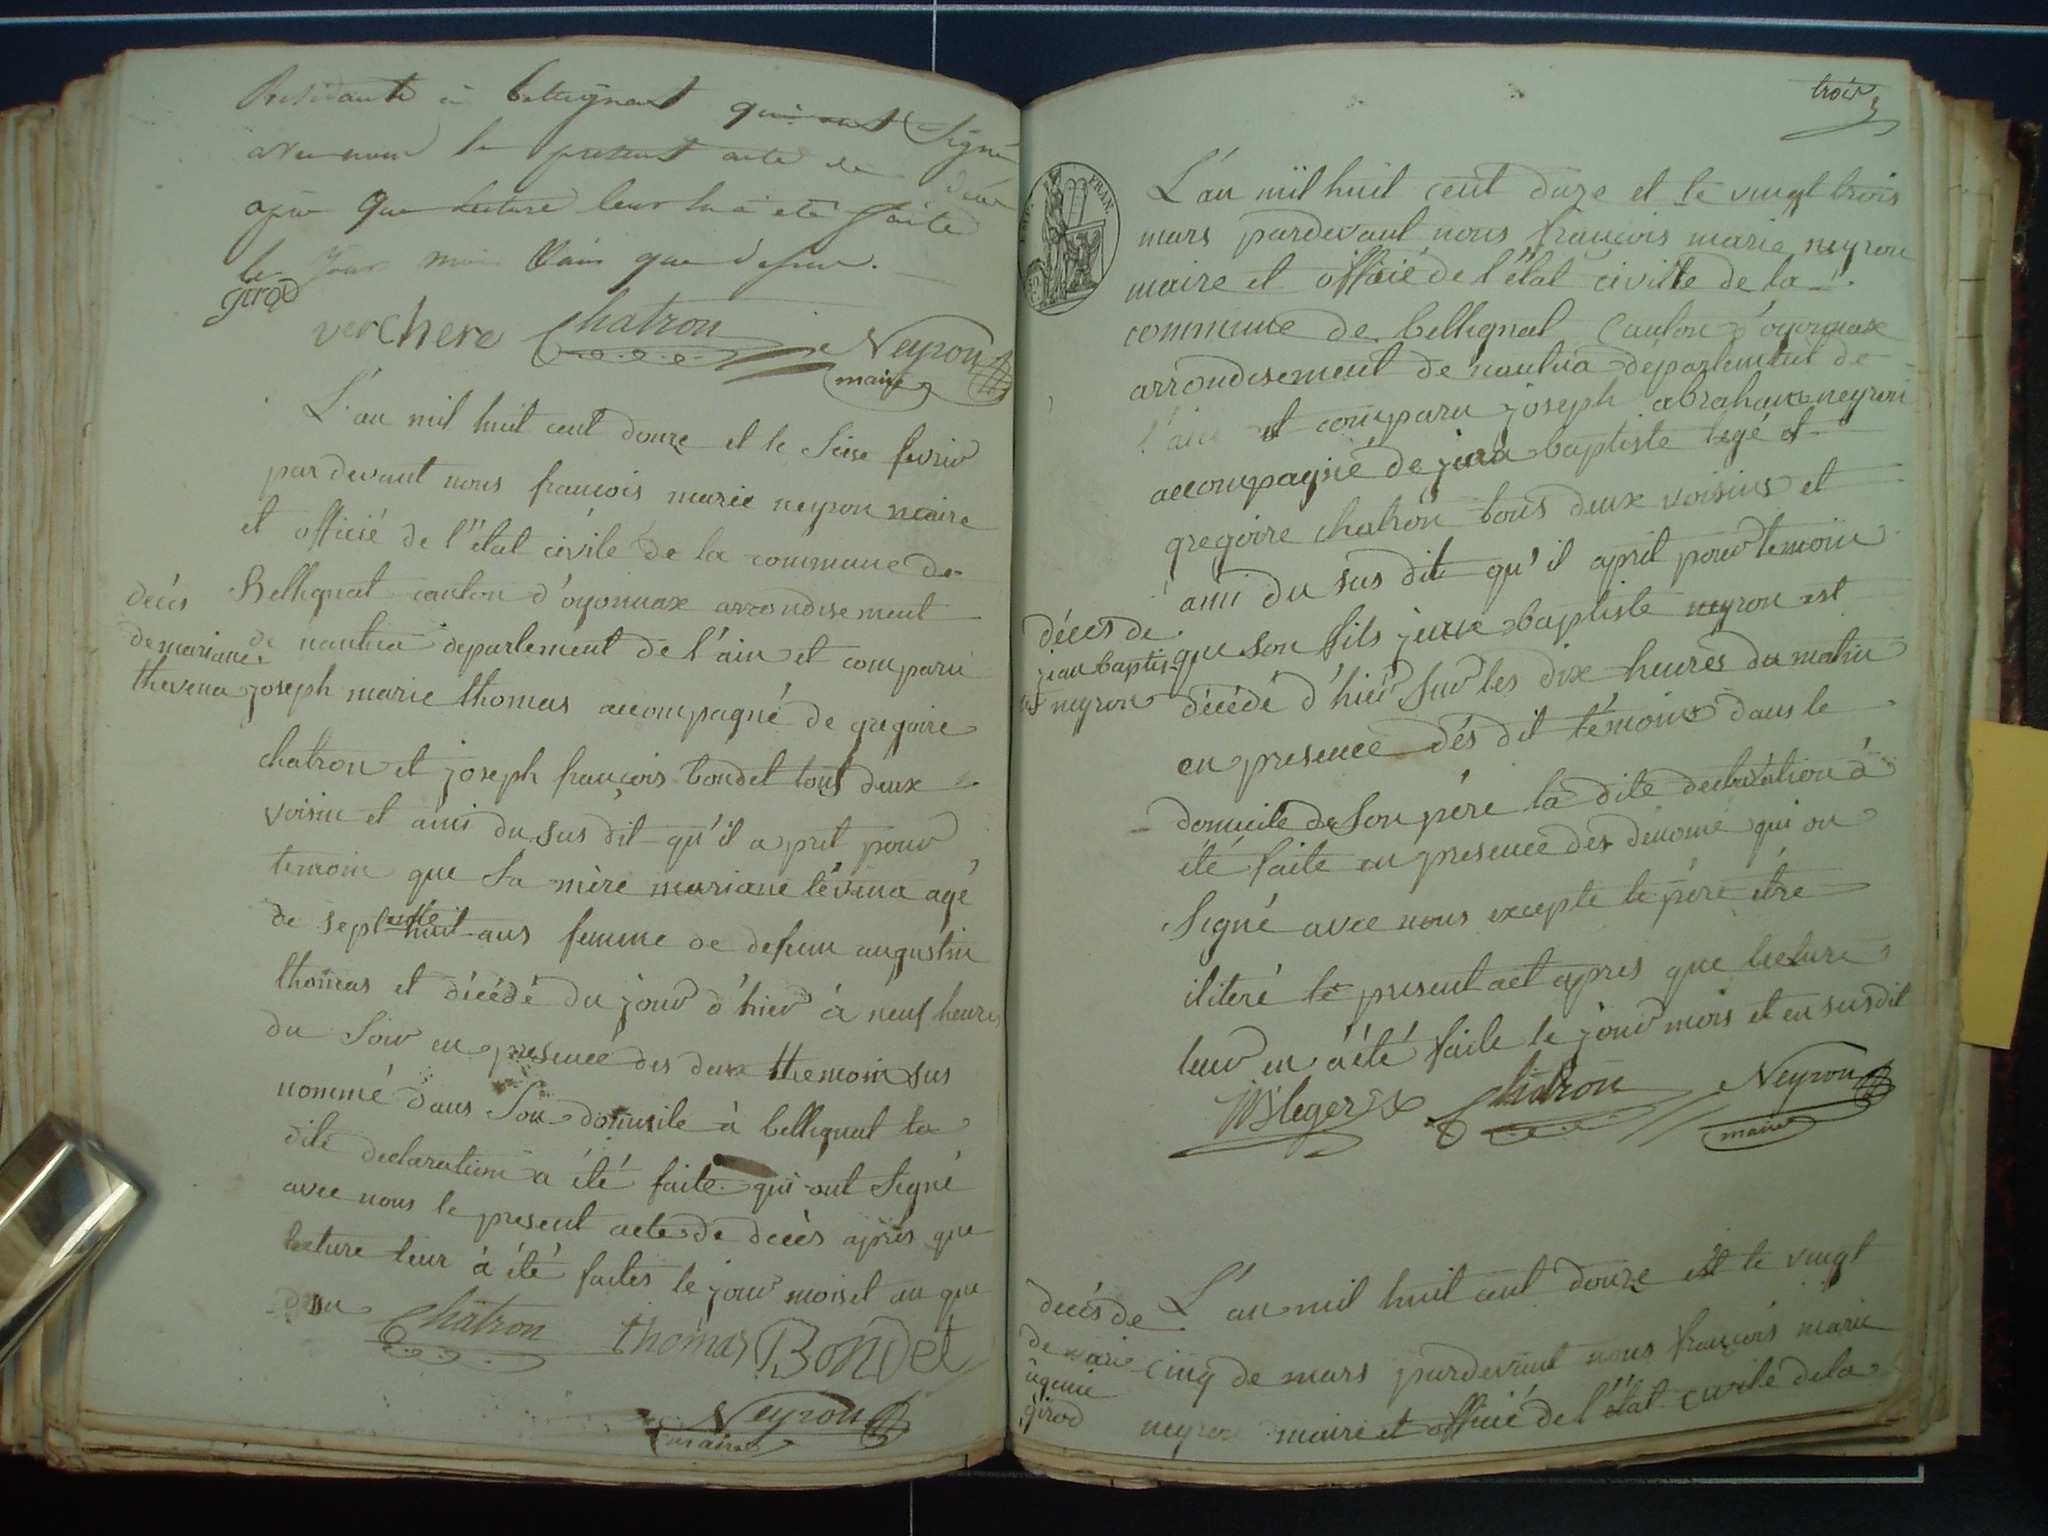 Residante à bellignat qui ont Signé
avec nous le present acte de décé
apre que lecture leur en a eté faite
le jour moi ans que desus.
girod
verchere Chatron Neyron
maire
L'an mil huit cent douze et le Seise fevrier
par devant nous francois marie neyron maire
et officié de l'état civile de la commune de
Bellignat canton d'oyonnax arrondisement
de nantua departement de l'ain et comparu
joseph marie thomas accompagné de gregoire
chatron et joseph françois bondet tous deux
voisin et ami du sus dit qu'il a prit pour
temoin que sa mère mariane tévena agé
de septente huit ans femme de defunt augustin
thomas et décédé du jour d'hier à neuf heures
du Soir en presence des deux themoin sus
nommé dans Son domicile à bellignat la
dite declaration a été faite qui ont Signé
avec nous le present acte de décès après que
lecture leur à été faites le jour mois et an que
desu
décès
de mariane
thevena
Chatron thomas Bondet
Neyron
maire
trois
FRAN.
L'an mil huit cent duze et le vingt trois
mars pardevant nous françois marie neyron
maire et officié de l'état civille de la
commune de bellignat Canton d'oyonnax
arrondisement de nantua departement de
l'ain et comparu joseph abraham neyron
accompagné de jean baptiste legé et
gregoire chatron tous deux voisins et
ami du sus dit qu'il a prit pour temoin
que son fils jean baptiste neyron est
décédé d'hier sur les dix heures du matin
en presence dés dit témoins dans le
domicile de Son père la dite declaration à
été faite en presence des denomé qui on
Signé avec nous excepte le père etre
iliteré le present act apres que lecture
leur en à été faite le jour mois et en susdit
décès de
jean baptis
te neyron
JB leger Chatron Neyron
maire
L'an mil huit cent douze et le vingt
cinq de mars pardevant nous françois marie
neyron maire et officié de l'état civile de la
decés de
de mari
ugenie
girod